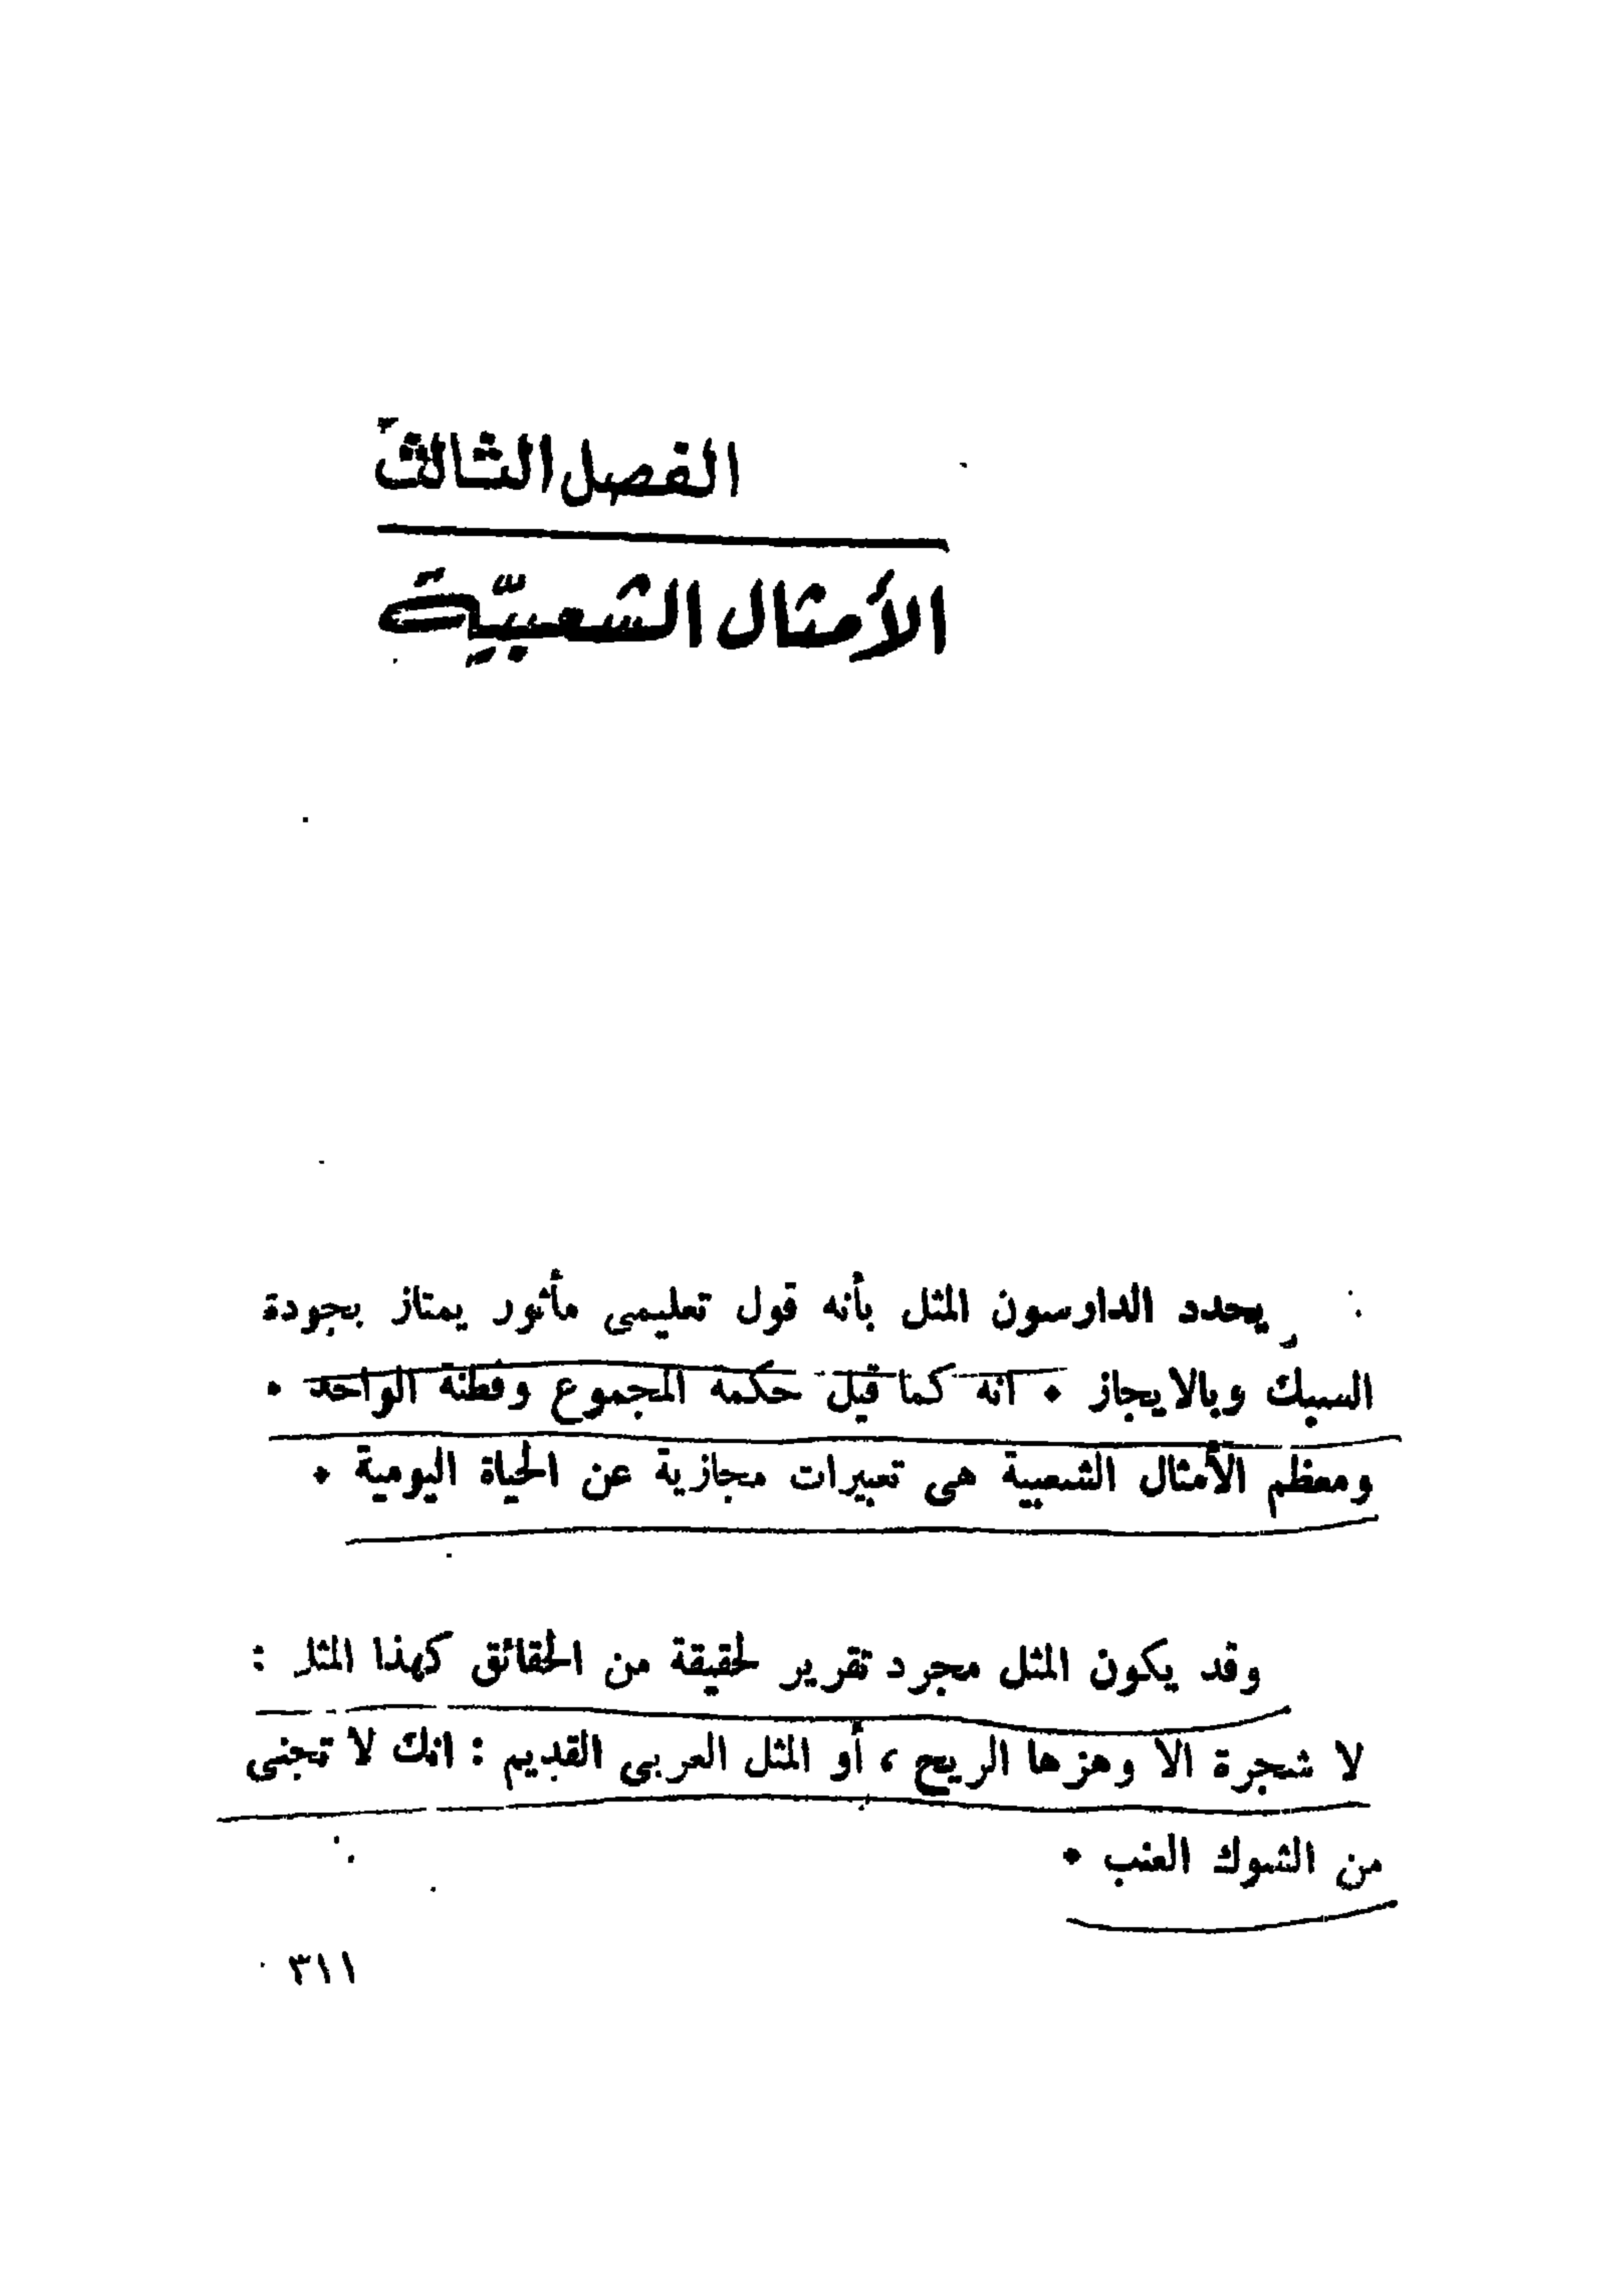 الفصل الثالث
الأمثال الشعبيّة
يحدد الدارسون المثل بأنه قول تعليمى مأثور يمتاز بجودة
السبك وبالايجاز . انه كما قيل حكمة المجموع وفطنة الواحد .
ومعظم الأمثال الشعبية هى تعبيرات مجازية عن الحياة اليومية .
وقد يكون المثل مجرد تقرير لحقيقة من الحقائق كهذا المثل :
لا شجرة الا وهزها الريح ، أو المثل العربى القديم : انك لا تجنى
من الشوك العنب .
٣١١